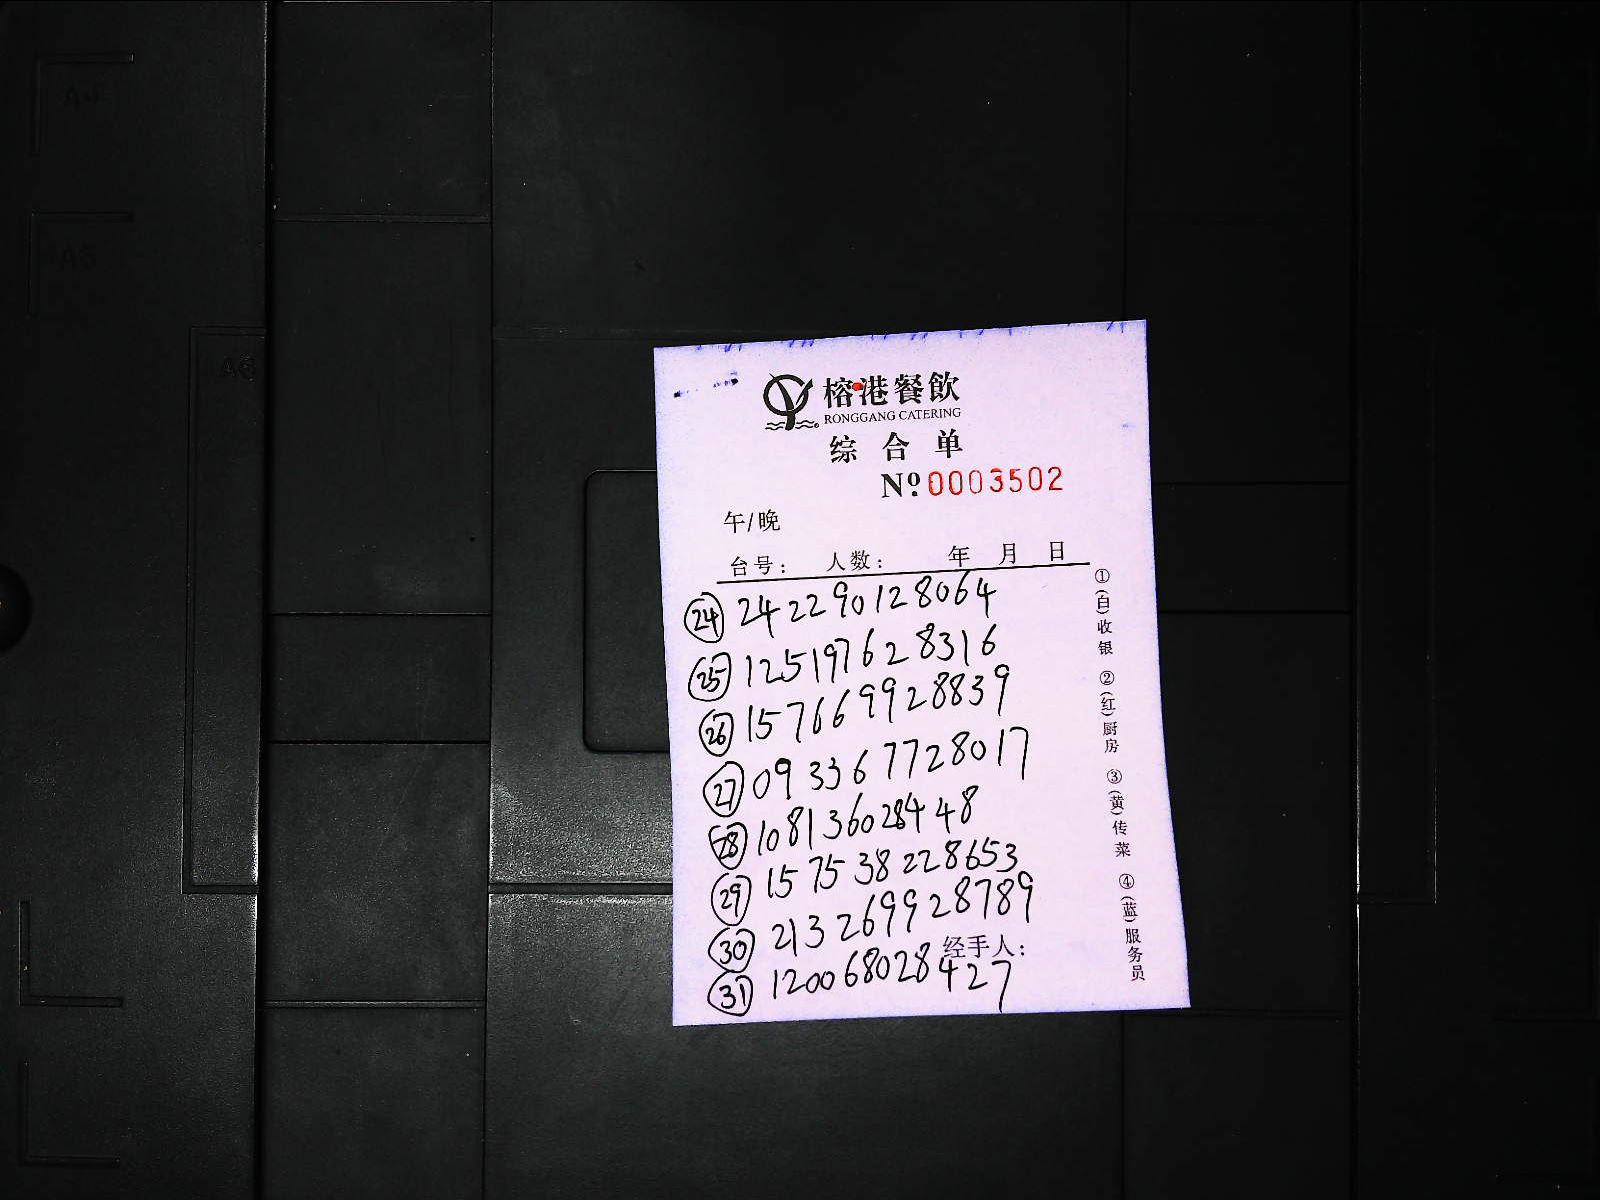 A4
A5
A6
榕港餐飲
RONGGANG CATERING
综合单
№ 0003502
午/晚
台号： 人数： 年 月 日
㉔ 242290128064
㉕ 125197628316
㉖ 157669928839
㉗ 093367728017
㉘ 108136028448
㉙ 157538228653
㉚ 213269928789
经手人：
㉛ 120068028427
①(白)收银 ②(红)厨房 ③(黄)传菜 ④(蓝)服务员